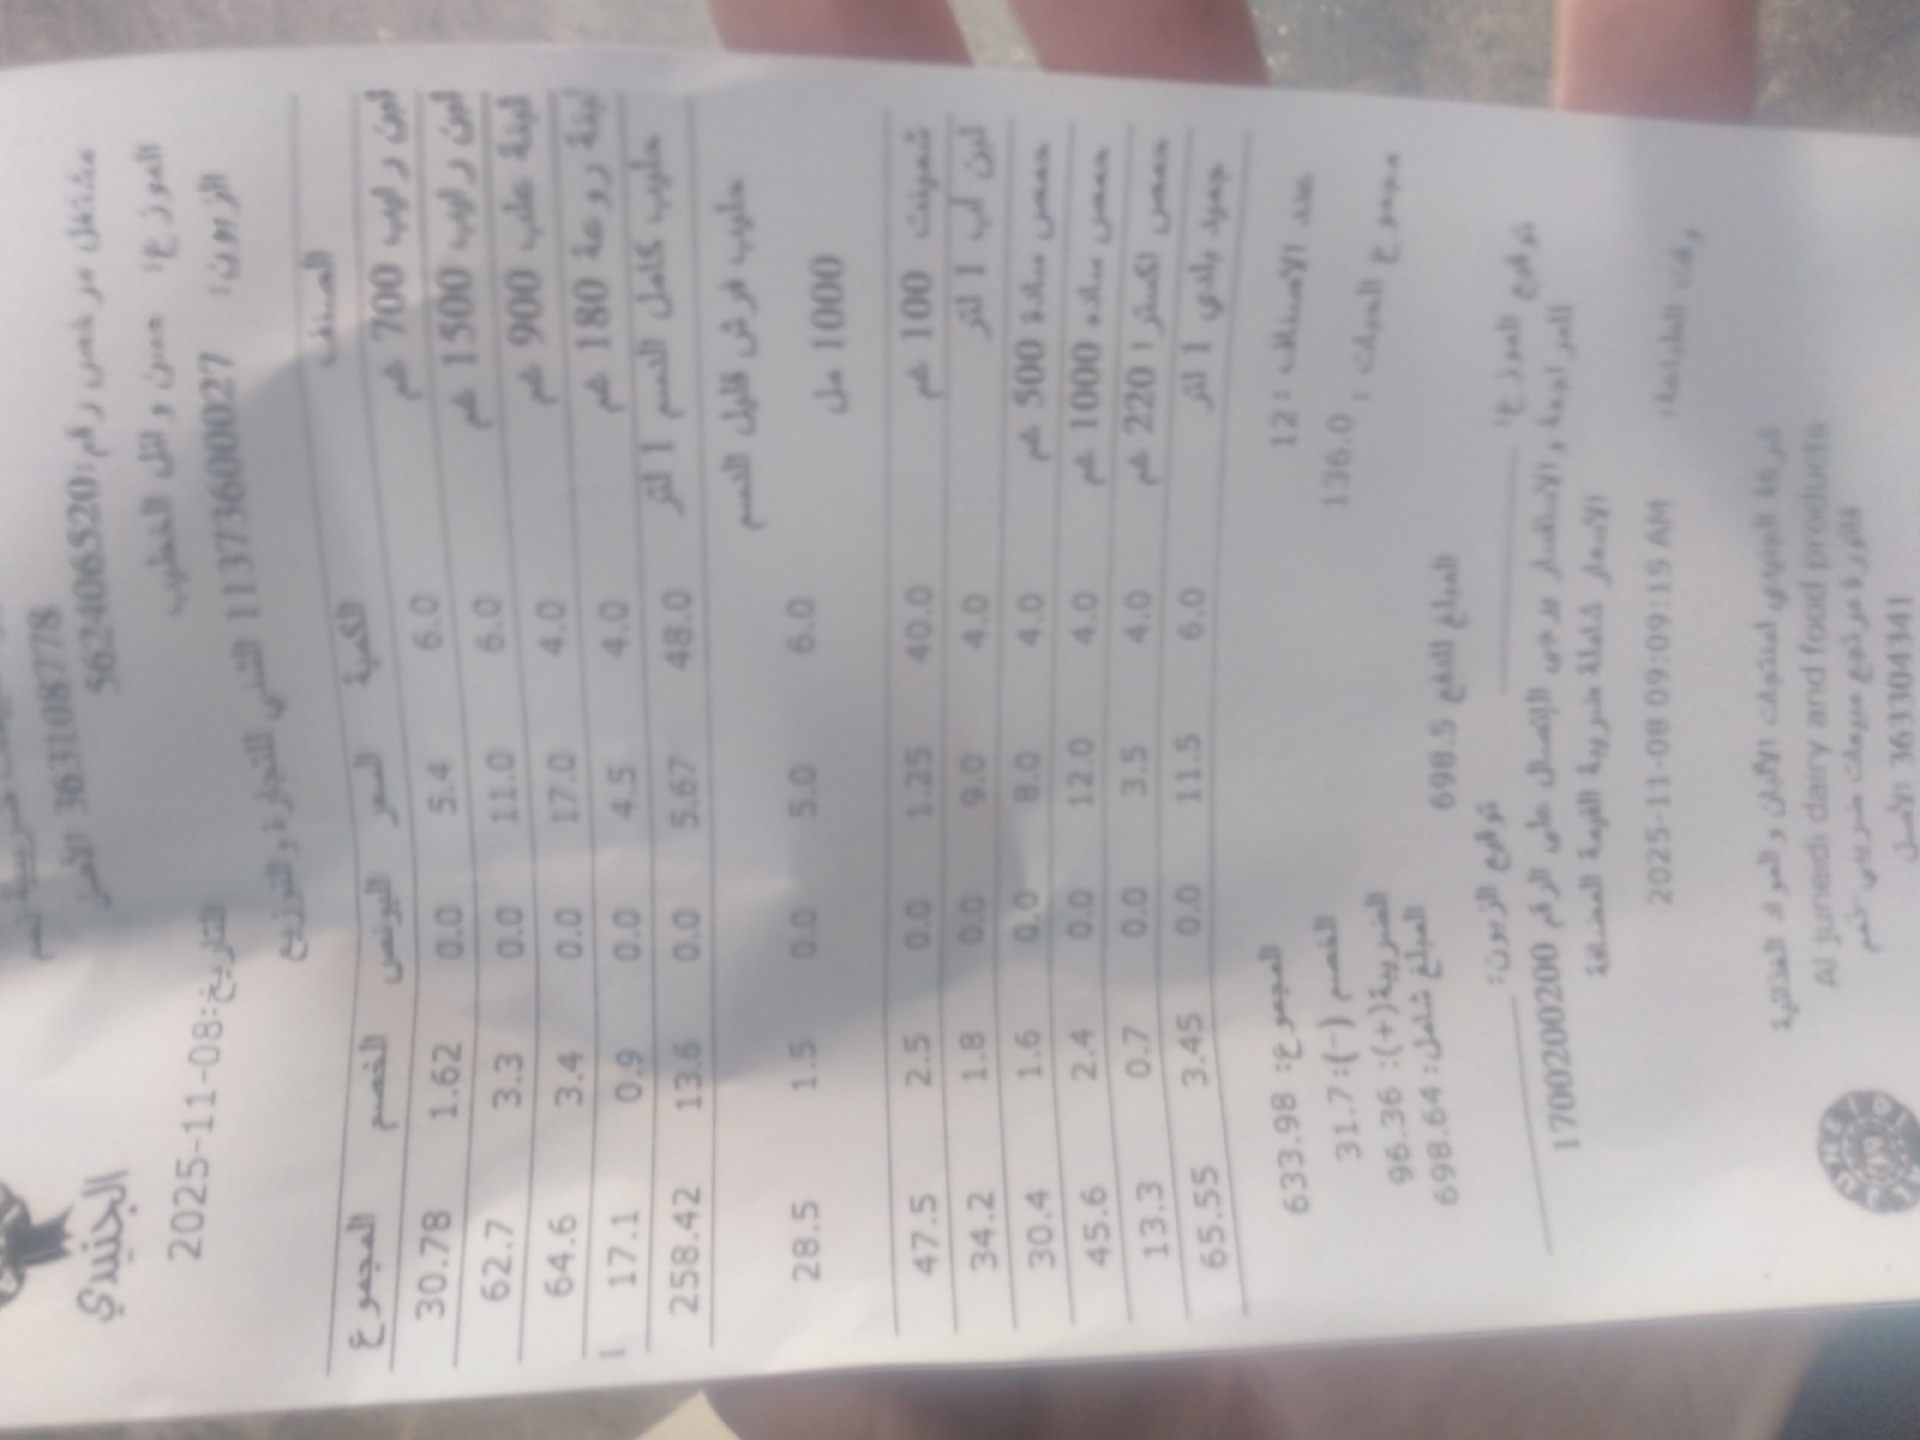 الجنيدي
363108778 الأصل
مشتغل مرخص رقم:562406520
الموزع: حسن وائل الخطيب
التاريخ:2025-11-08
الزبون: 1137360027 التقني للتجارة و التوزيع
الصنف الكمية السعر البونص الخصم المجموع
لبن رايب 700 غم 6.0 5.4 0.0 1.62 30.78
لبن رايب 1500 غم 6.0 11.0 0.0 3.3 62.7
لبنة علب 900 غم 4.0 17.0 0.0 3.4 64.6
لبنة روعة 180 غم 4.0 4.5 0.0 0.9 17.1
حليب كامل الدسم 1 لتر 48.0 5.67 0.0 13.6 258.42
حليب فرش قليل الدسم
1000 مل 6.0 5.0 0.0 1.5 28.5
شمينت 100 غم 40.0 1.25 0.0 2.5 47.5
لبن اب 1 لتر 4.0 9.0 0.0 1.8 34.2
حمص سادة 500 غم 4.0 8.0 0.0 1.6 30.4
حمص ساده 1000 غم 4.0 12.0 0.0 2.4 45.6
حمص اكسترا 220 غم 4.0 3.5 0.0 0.7 13.3
جميد بلدي 1 لتر 6.0 11.5 0.0 3.45 65.55
عدد الاصناف : 12
المجموع: 633.98
مجموع الحبات : 136.0
الخصم (-): 31.7
الضريبة(+): 96.36
المبلغ شامل: 698.64
المبلغ للدفع 698.5
توقيع الموزع:
توقيع الزبون:
للمراجعة و الاستفسار يرجى الإتصال على الرقم 1700200200
الاسعار شاملة ضريبة القيمة المضافة
وقت الطباعة: 2025-11-08 09:09:15 AM
شركة الجنيدي لمنتجات الألبان و المواد الغذائية
Al juneidi dairy and food products
فاتورة مرتجع مبيعات ضريبي خصم
363304341 الأصل